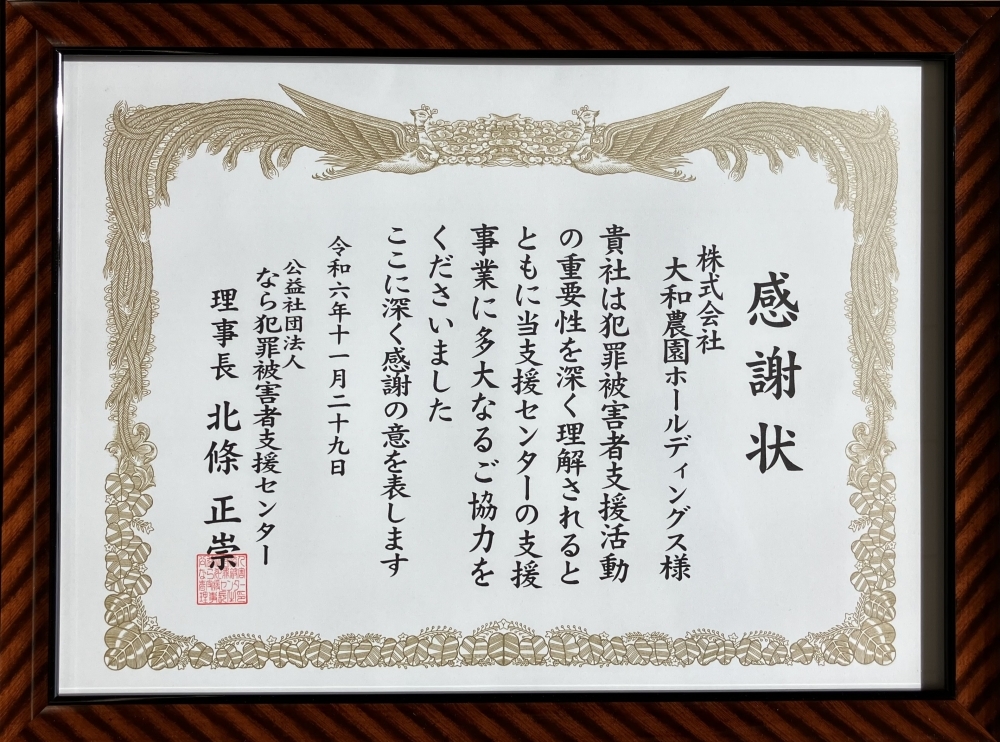 感謝状
株式会社
大和農園ホールディングス様
貴社は犯罪被害者支援活動
の重要性を深く理解されると
ともに当支援センターの支援
事業に多大なるご協力を
くださいました
ここに深く感謝の意を表します
令和六年十一月二十九日
公益社団法人
なら犯罪被害者支援センター
理事長 北條 正崇